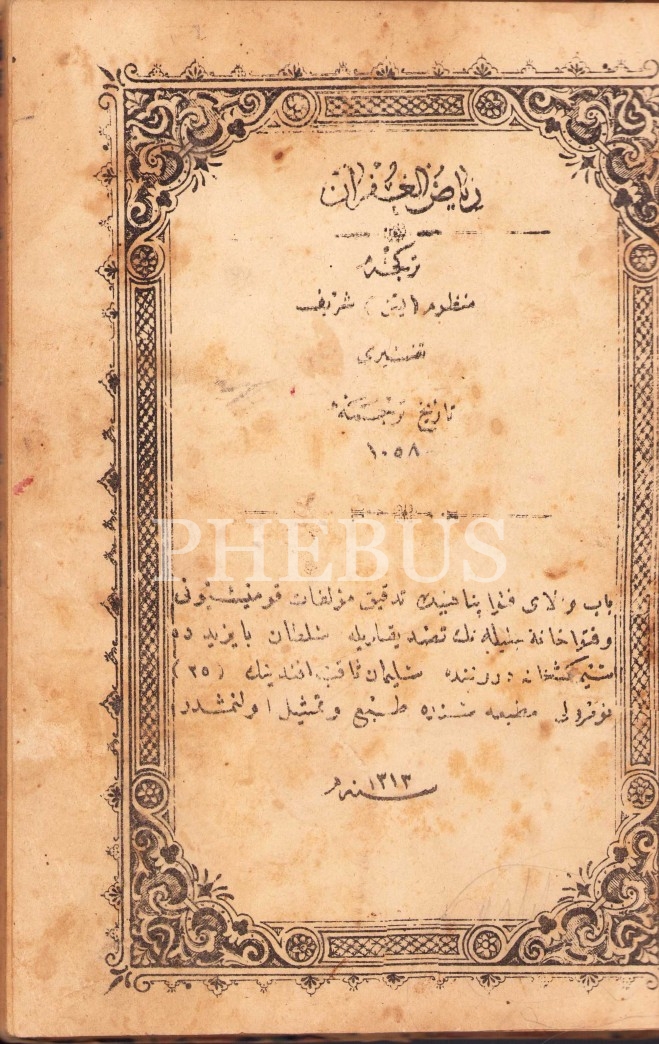 رياض الغفران
تركجه
منظوم (يس) شريف
تفسيرى
تاريخ ترجمه
١٠٥٨
PHEBUS
باب والاى فتوا پناهينك تدقيق مؤلفات قومسيونى
وفتواخانه جليله نك تصديقاريله سلطان بايزيد ده
دروننده سليمان افندينك (٢٥)
نومرولى مطبعه سنده طبع وتمثيل اولنمشدر
سنه ١٣١٣